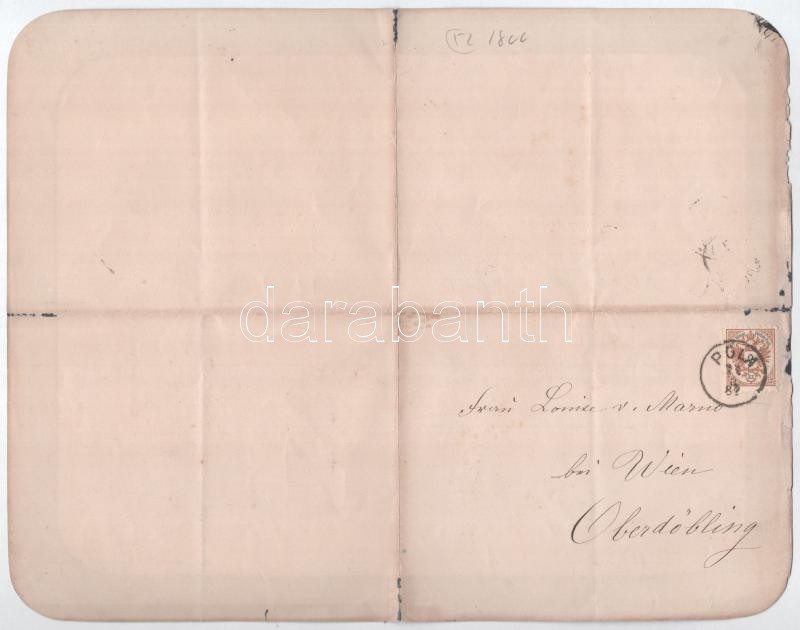 1800
darabanth
PÖLN
82
Frau Louise v. Marno
bei Wien
Oberdöbling